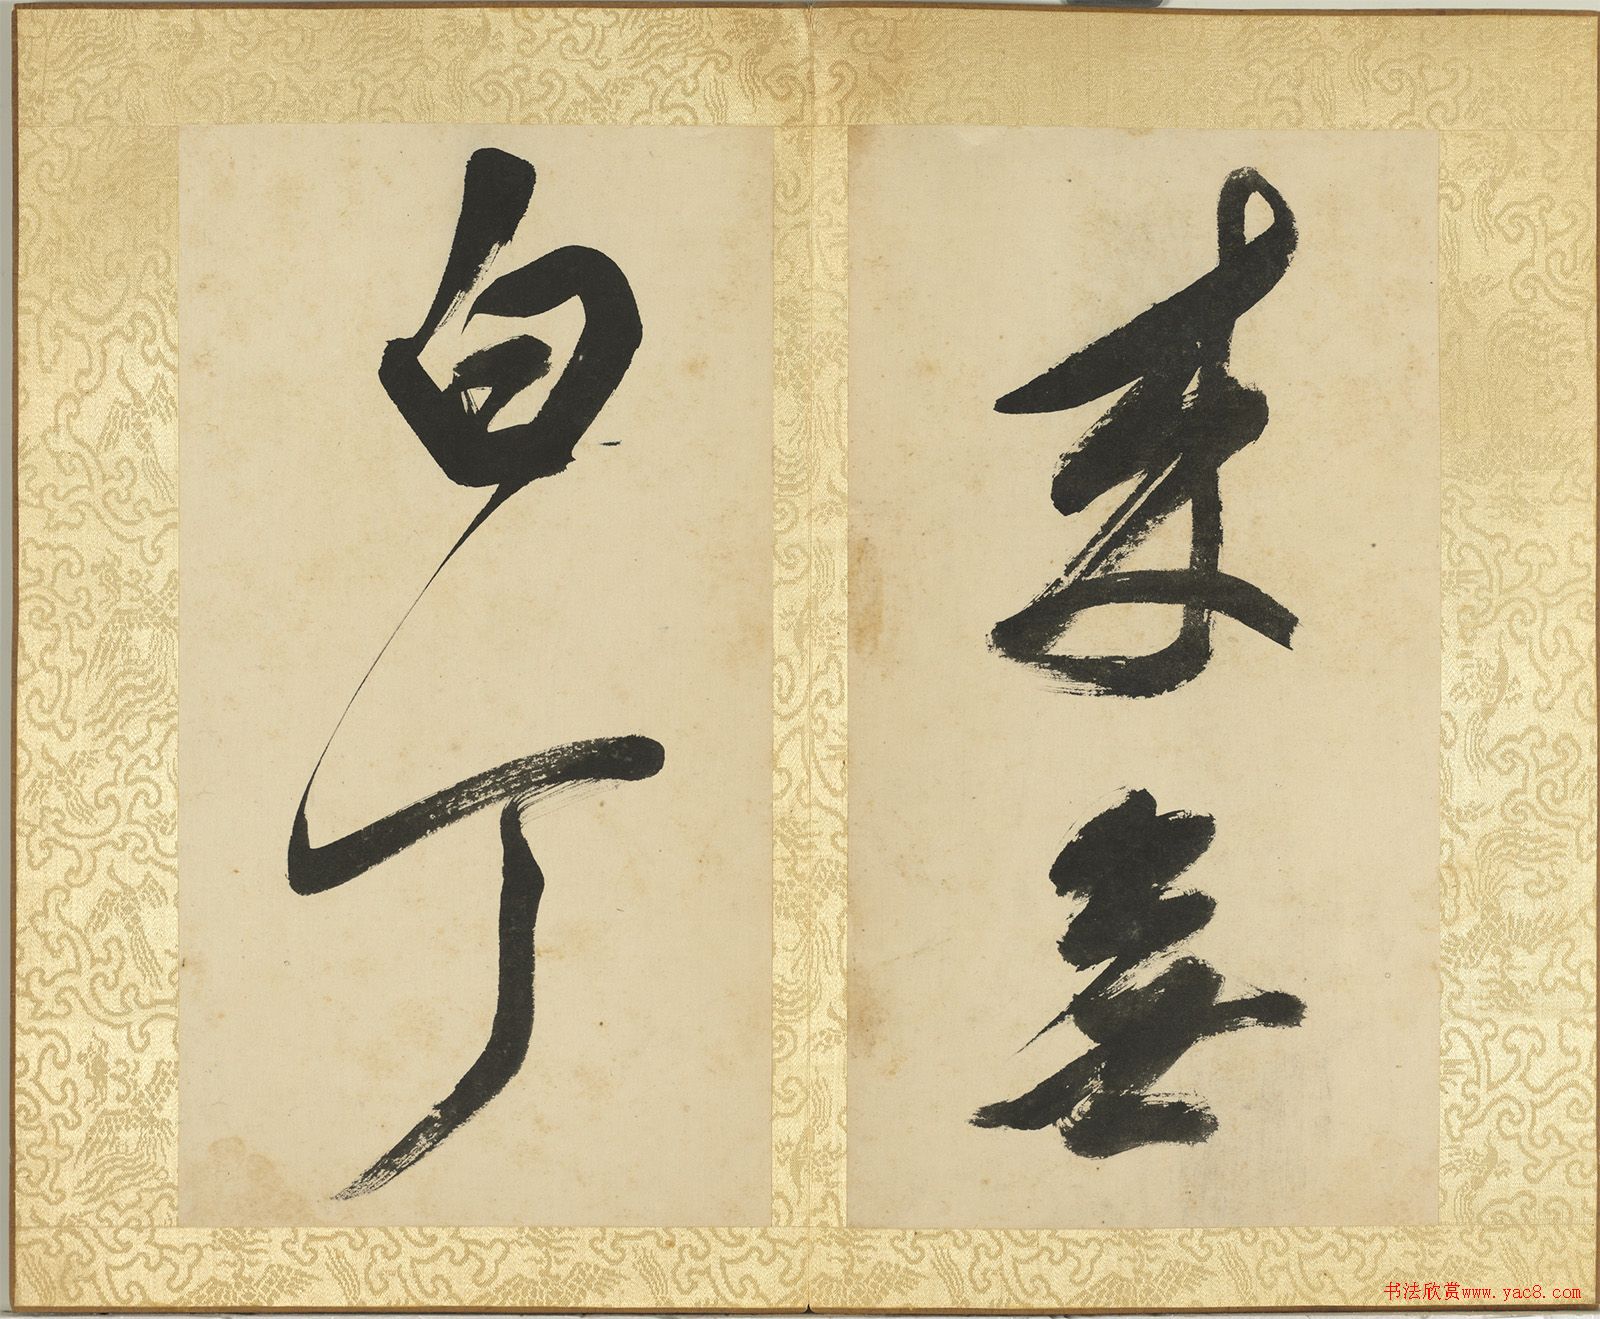 来無
白丁
书法欣赏www.yac8.com